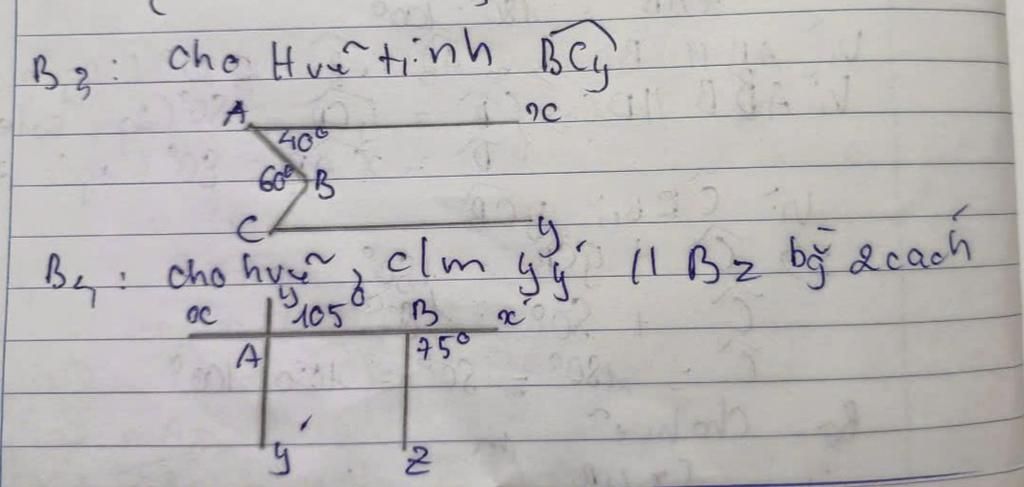 B3: Cho Hvẽ tính BCy
A x
40°
60° B
C y
B4: cho hvẽ, c/m yy' // Bz bg̃ 2 cách
x y 105° B x'
A 75°
y' z